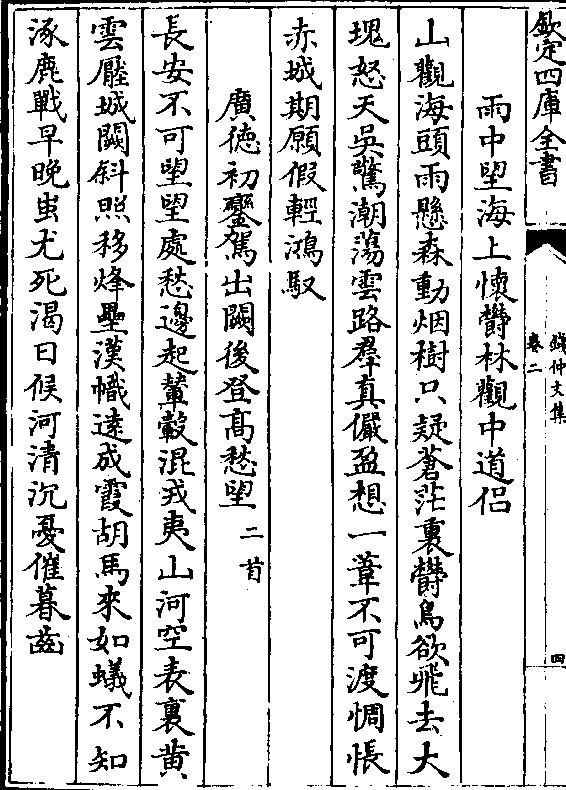 欽定四庫全書
錢仲文集
卷二
四
雨中望海上懷欎林觀中道侣
山觀海頭雨懸森動烟樹只疑蒼茫裏欎烏欲飛去大
瑰怒天吳驚潮蕩雲路羣真儼盈想一葦不可渡惆悵
赤城期願假輕鴻馭
廣徳初鑾駕出闗後登髙愁望二首
長安不可望望處愁邊起輦轂混戎夷山河空表裏黄
雲壓城闕斜照移烽壘漢幟逺成霞胡馬來如蟻不知
涿鹿戰早晚蚩尤死渴日候河清沉憂催暮齒